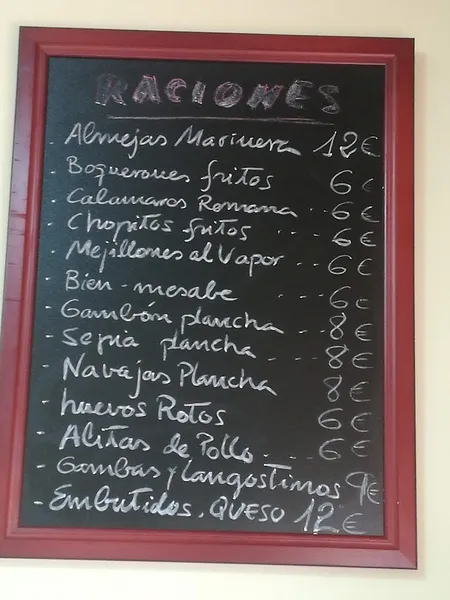 RACIONES
- Almejas Marinera 12€
- Boquerones fritos 6€
- Calamares Romana .. 6€
- Chopitos fritos .. 6€
- Mejillones al Vapor .. 6€
- Bien-mesabe ... 6€
- Gambón plancha .. 8€
- Sepia plancha ... 8€
- Navajas Plancha 8€
- huevos Rotos 6€
- Alitas de Pollo .... 6€
- Gambas y Langostinos 9€
- Embutidos, QUESO 12€